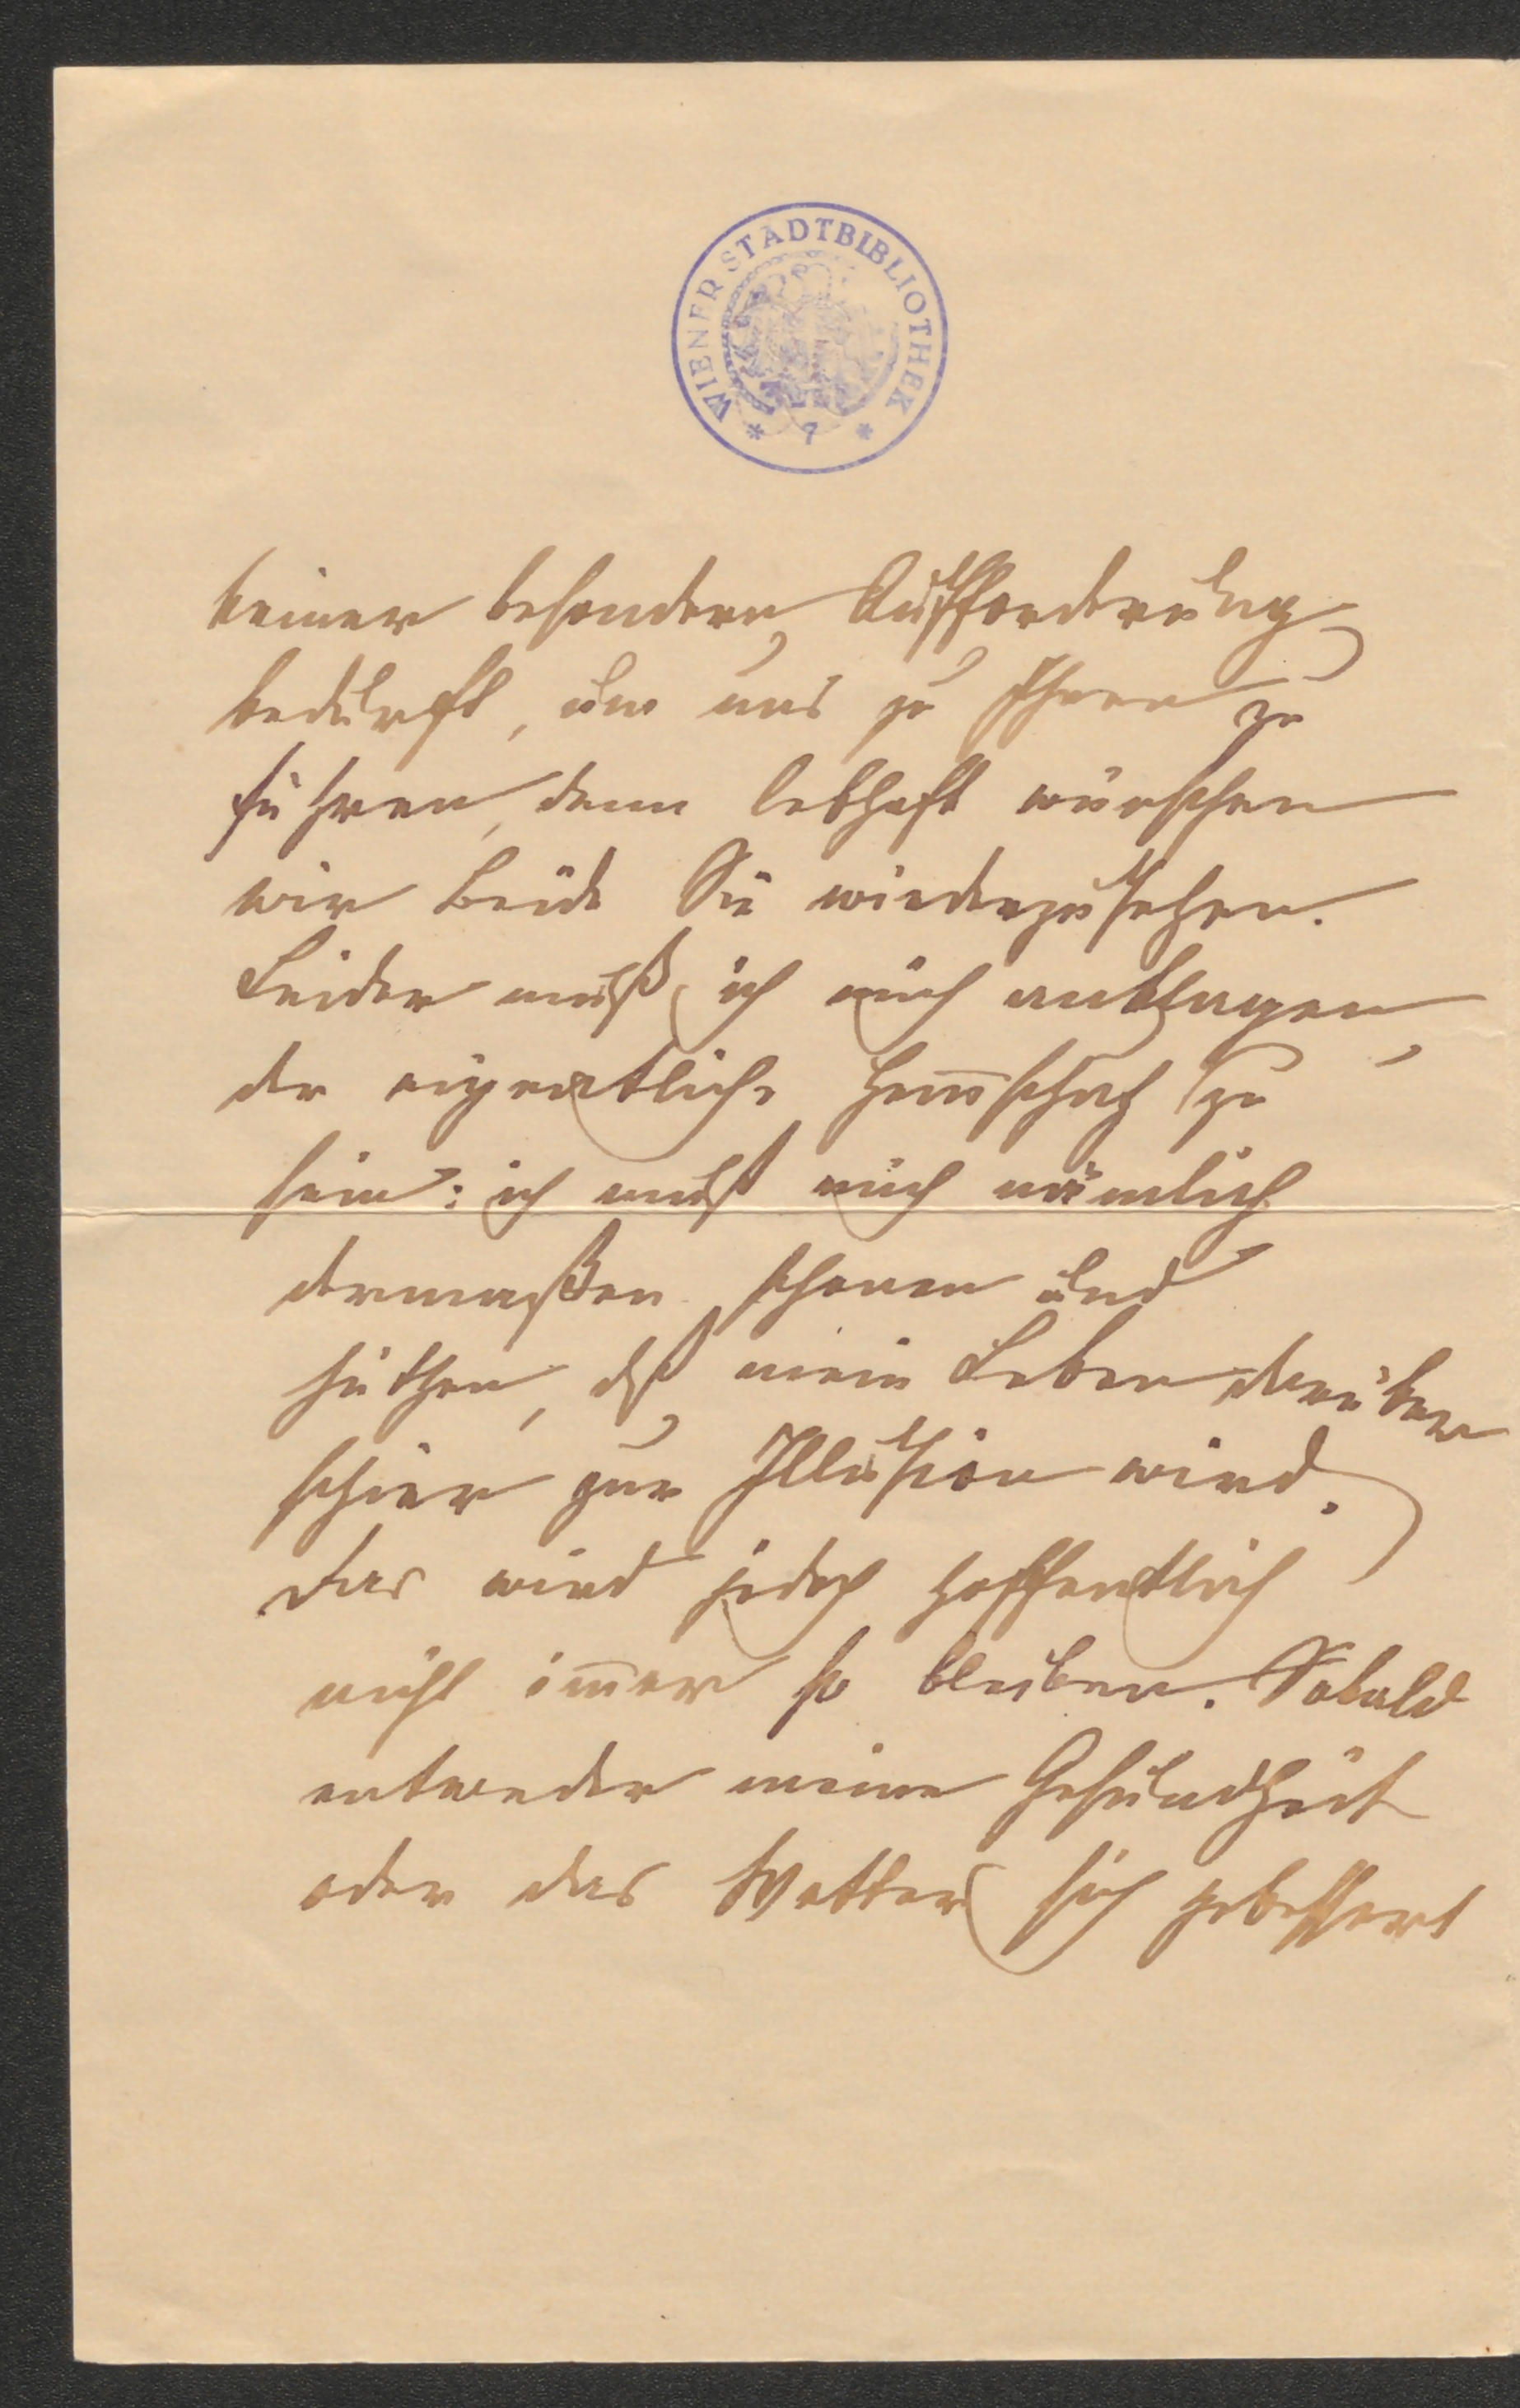 WIENER STADTBIBLIOTHEK
* 7 *
keiner besondern Aufforderung
bedurft, um uns zu Ihnen zu
führen, denn lebhaft wünschen
wir Beide Sie wiederzusehen.
Leider muß ich mich anklagen,
der eigentliche Hem̅schuh zu
sein: ich muß mich nämlich
dermaßen schonen und
hüthen, dß mein Leben darüber
schier zur Illusion wird.
Das wird jedoch hoffentlich
nicht im̅er so bleiben. Sobald
entweder meine Gesundheit
oder das Wetter sich gebessert